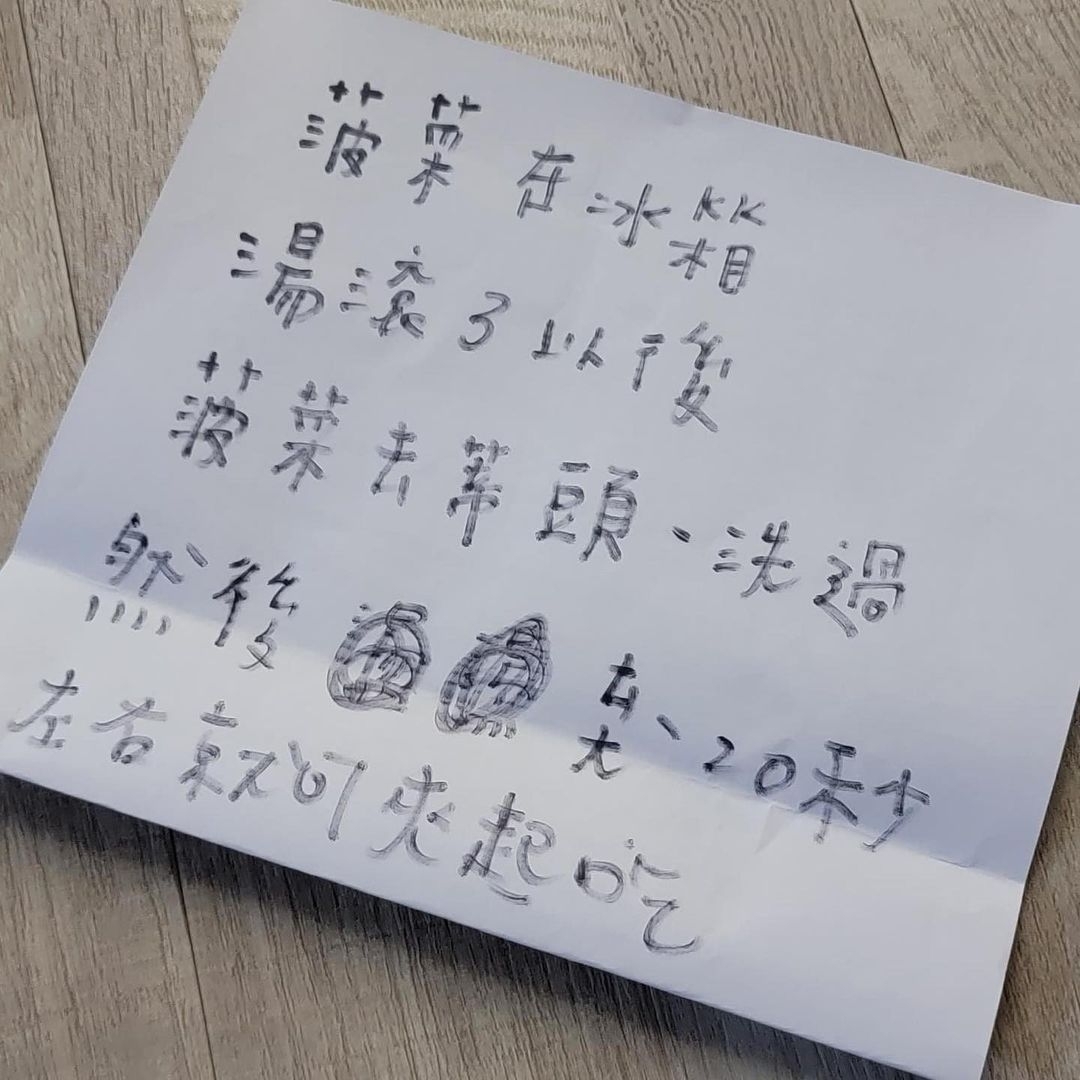 菠菜在冰箱
湯滾了以後
菠菜去蒂頭、洗過
然後 去、20秒
左右就可夾起吃